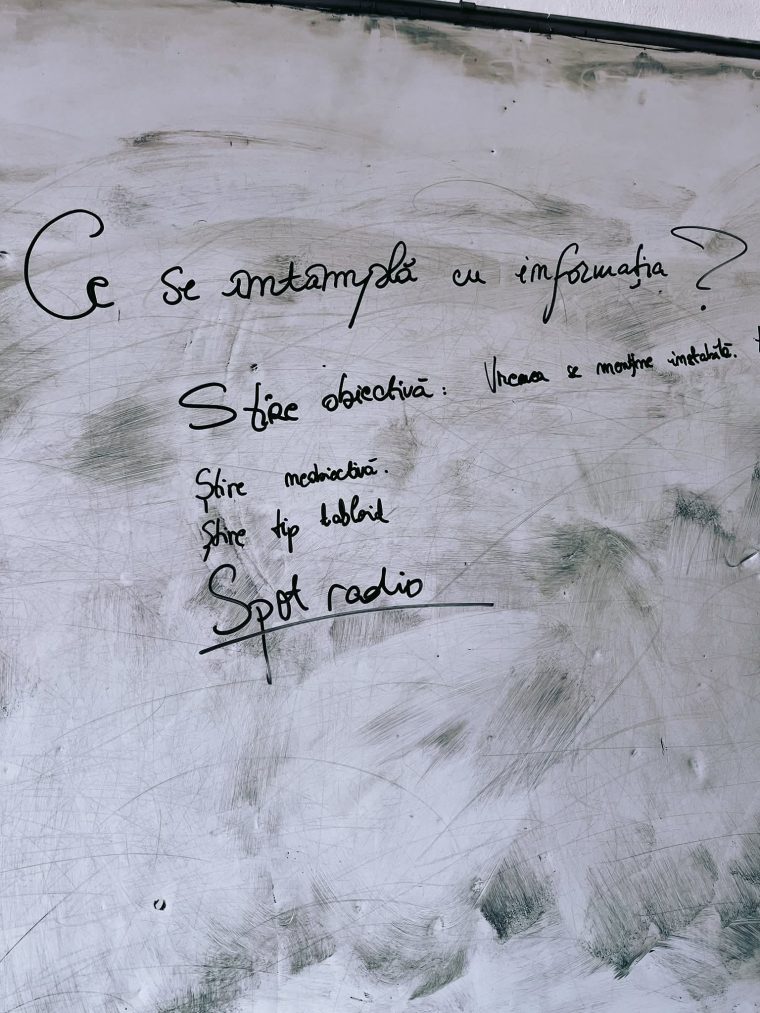 Ce se intamplă cu informația ?
Știre obiectivă : Vremea se menține instabilă.
Știre neobiectivă.
Știre tip tabloid
Spot radio